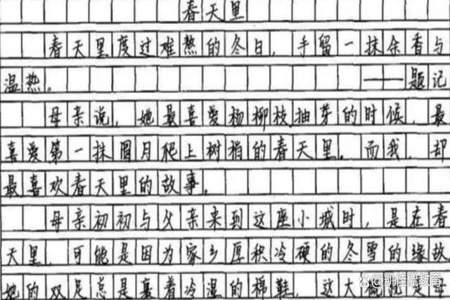 春天里
春天里度过难熬的冬日，手留一抹余香与
温热。——题记
母亲说，她最喜爱杨柳枝抽芽的时候，最
喜爱第一抹圆月爬上树梢的春天里。而我，却
最喜欢春天里的故事。
母亲初初与父亲来到这座小城时，是在春
天里，可能是因为家乡厚积冷硬的冬雪的缘故
她的双足总是裹着冷湿的棉鞋，这大